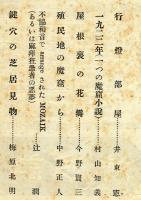 行燈部屋……井東憲
一九二二年(一つの魔窟小説)……村山知義
屋根裏の花嫁……今野賢三
殖民地の魔窟から……中野正人
不協和音で arrange された MOZAIK
(あるいは麻痺狂患者の悪夢)……辻潤
鍵穴の芝居見物……梅原北明